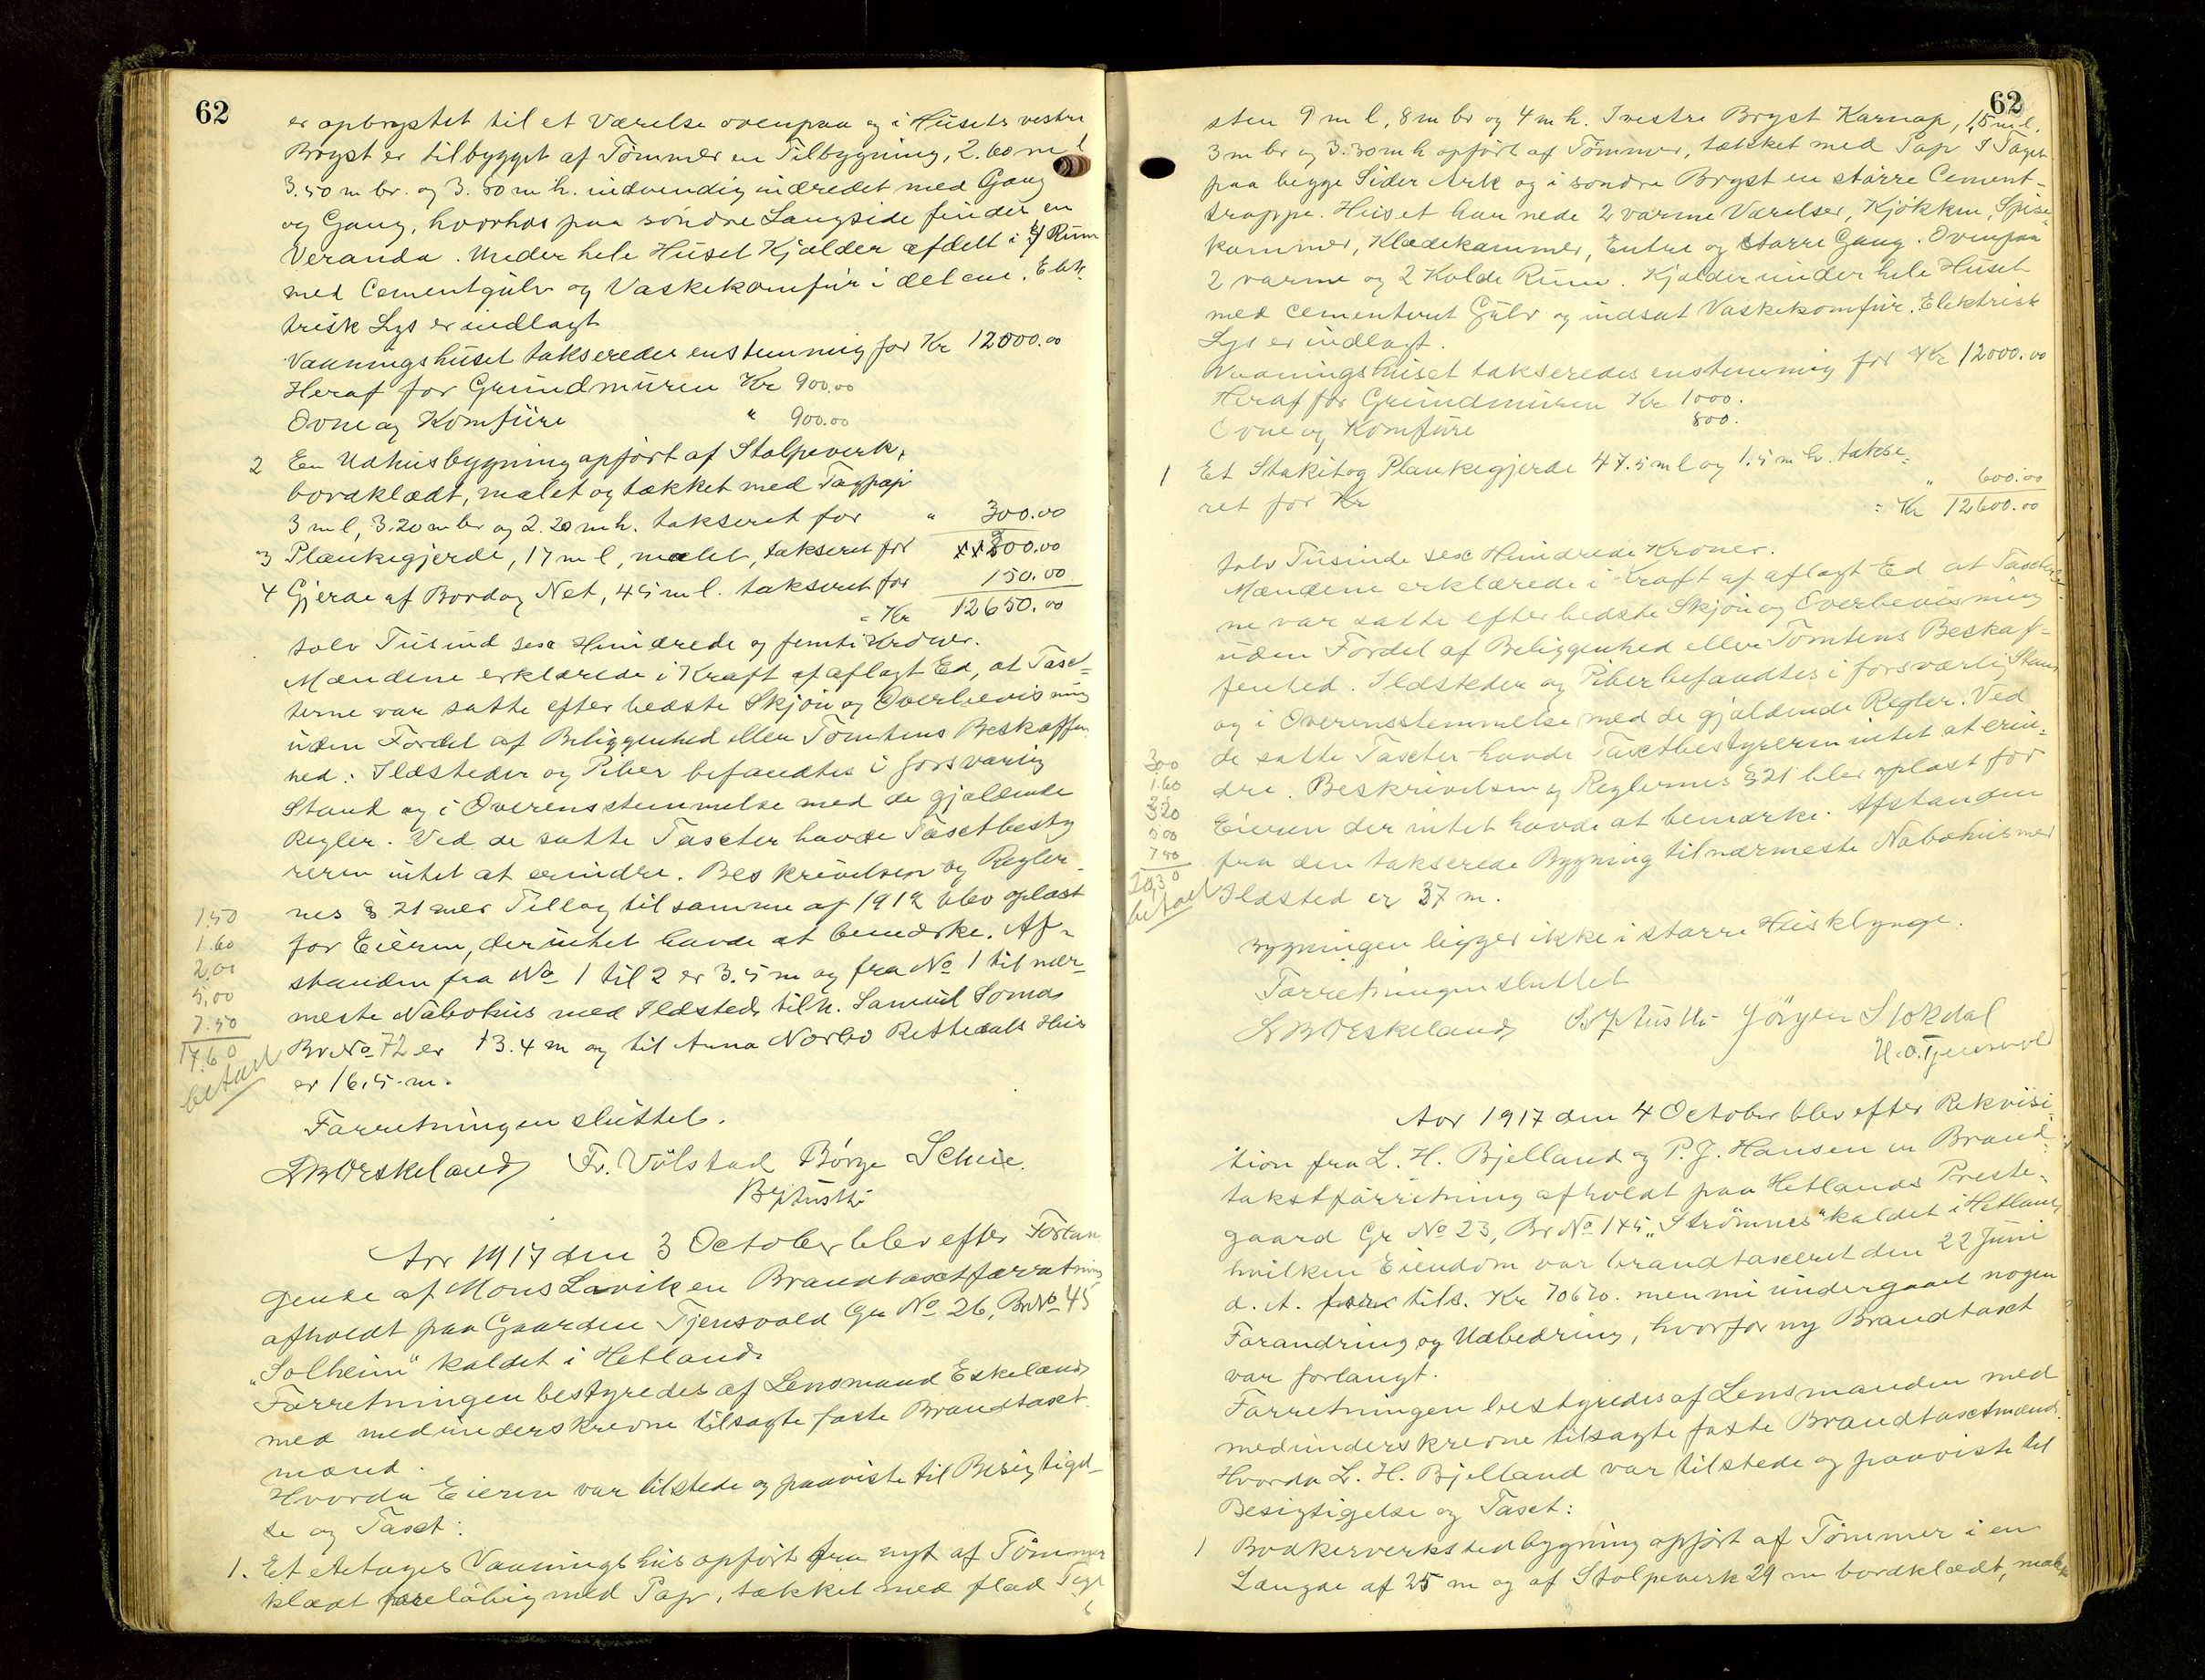 62
er opbrystet til et Værelse ovenpaa og i Husets vestre
Bryst er tilbygget af Tömmer en Tilbygning, 2.60 m l
3.50 m br. og 3.50 m h. indvendig indredet med Gang
og Gang, hvorhos paa söndre Langside findes en
Veranda. Under hele Huset Kjælder afdelt i 4 Rum
med Cementgulv og Vaskekomfur i det ene. Elek-
trisk Lys er indlagt
Vaaningshuset takseredes enstemmig for Kr 12000.00
Heraf for Grundmuren Kr 900.00
Ovne og Komfüre " 900.00
2 En Udhusbygning opfört af Stolpeverk,
bordklædt, malet og tækket med Tagpap
3 m l, 3.20 m br og 2.20 m h. takseret for " 300.00
3 Plankegjerde, 17 m l, malet, takseret for 200.00
4 Gjerde af Bord og Net, 45 m l. takseret for 150.00
= Kr 12650.00
tolv Tusind sex Hundrede og femti Kroner.
Mændene erklærede i Kraft af aflagt Ed, at Taxt-
terne var satte efter bedste Skjön og Overbevisning
uden Fordel af Beliggenhed eller Tomtens Beskaffen
hed. Ildsteder og Piber befandtes i forsvarlig
Stand og i Overensstemmelse med de gjældende
Regler. Ved de satte Taxter havde Taxtbesty
reren intet at erindre. Beskrivelsen og Regler-
nes § 21 med Tillæg til samme af 1912 blev oplæst
for Eieren, der intet havde at bemerke. Af-
standen fra No 1 til 2 er 3.5 m og fra No 1 til nær-
meste Nabohus med Ildsted tilh. Samuel Sömds
Br No 72 er 13.4 m og til Anna Norbo Rettedals Hus
er 16.5 m.
1.50
1.60
2.00
5.00
7.50
17.60
betalt
Forretningen sluttet.
A B Öeskeland Fr. Völstad Börge Schie.
Aar 1917 den 3 October blev efter Forlan
gende af Mons Lavik en Brandtaxtforretning
afholdt paa Gaarden Tjensvold Gr No 26, Br No 45
"Solheim" kaldet i Hetland
Forretningen bestyredes af Lensmand Eskeland
med medunderskrevne tilsagte faste Brandtaxt
mænd.
Hvorda Eieren var tilstede og paaviste til Besigtigel-
se og Taxt:
1. Et etetages Vaaningshus opfört fra nyt af Tömmer
klædt foreløbig med Pap, tækket med flad Tegl
62
sten 9 m l, 8 m br og 4 m h. I vestre Bryst Karnap, 1,5 m l.
3 m br og 3.30 m h opfört af Tömmer, tækket med Pap I Taget
paa begge Sider Ark og i söndre Bryst en större Cement-
trappe. Huset har nede 2 varme Værelser, Kjökken, Spise-
kammer, Klædekammer, Entre og större Gang. Ovenpaa
2 varme og 2 Kolde Rum. Kjælder under hele Huset
med cementeret Gulv og indsat Vaskekomfur. Elektrisk
Lys er indlagt.
Vaaningshuset takseredes enstemmig for Kr 12000.00
Heraf for Grundmuren Kr 1000.
Ovne og Komfüre 800.
1 Et Stakit og Plankegjerde 47.5 m l og 1.5 m h. takse-
ret for Kr " 600.00
= Kr 12600.00
tolv Tusinde sex Hundrede Kroner.
Mændene erklærede i Kraft af aflagt Ed at Taxter-
ne var satte efter bedste Skjön og Overbevisning
uden Fordel af Beliggenhed eller Tomtens Beskaf-
fenhed. Ildsteder og Piber befandtes i forsvarlig Stand
og i Overensstemmelse med de gjældende Regler. Ved
de satte Taxter havde Taxtbestyreren intet at erin-
dre. Beskrivelsen og Reglernes § 21 blev oplæst for
Eieren der intet havde at bemærke. Afstanden
fra den takserede Bygning til nærmeste Nabohus med
Ildsted er 37 m.
300
1.60
3.20
5.00
7.50
20,30
betalt
Bygningen ligger ikke i större Husklynge.
Forretningen sluttet
A B Öeskeland Jörgen Stokdal
H. O. Tjensvold
Aar 1917 den 4 October blev efter Rekvisi-
tion fra L. H. Bjelland og P. J. Hansen en Brand-
takstforretning afholdt paa Hetlands Preste-
gaard Gr No 23, Br No 145 "Strömnes" kaldet i Hetland,
hvilken Eiendom var brandtaxeret den 22 Juni
d. A. tils. Kr 70670. men nu undergaaet nogen
Forandring og Udbedring, hvorfor ny Brandtaxt
var forlangt.
Forretningen bestyredes af Lensmanden med
medunderskrevne tilsagte faste Brandtaxtmænd.
Hvorda L. H. Bjelland var tilstede og paaviste til
Besigtigelse og Taxt:
1 Bödkerverkstedbygning opfört af Tömmer i en
Længde af 25 m og af Stolpeverk 29 m bordklædt, malet